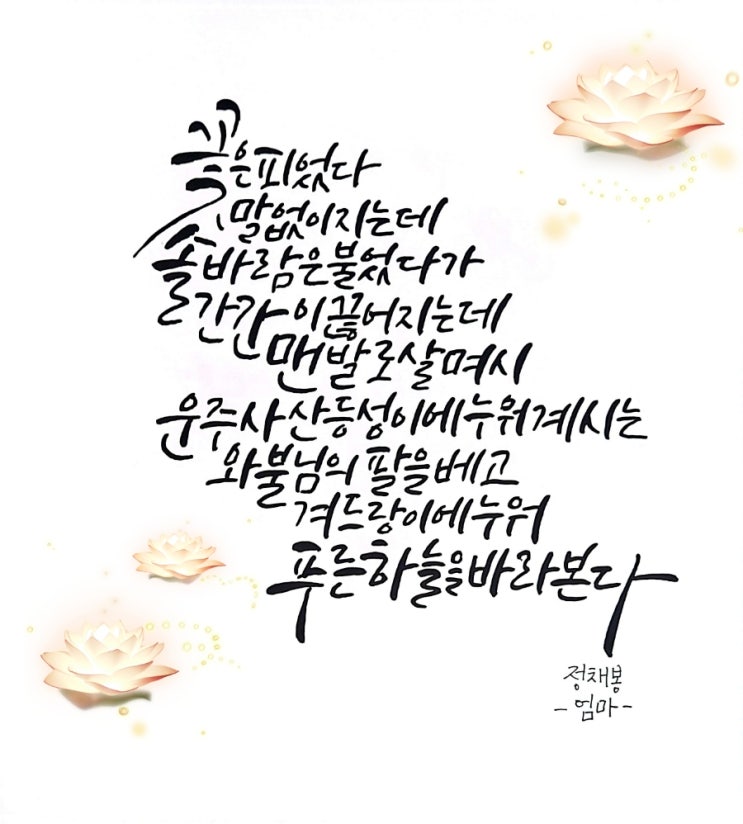 꽃은피었다
말없이지는데
솔바람은불었다가
간간이끊어지는데
맨발로살며시
운주사산등성이에누워계시는
와불님의 팔을베고
겨드랑이에누워
푸른하늘을바라본다
정채봉
-엄마-